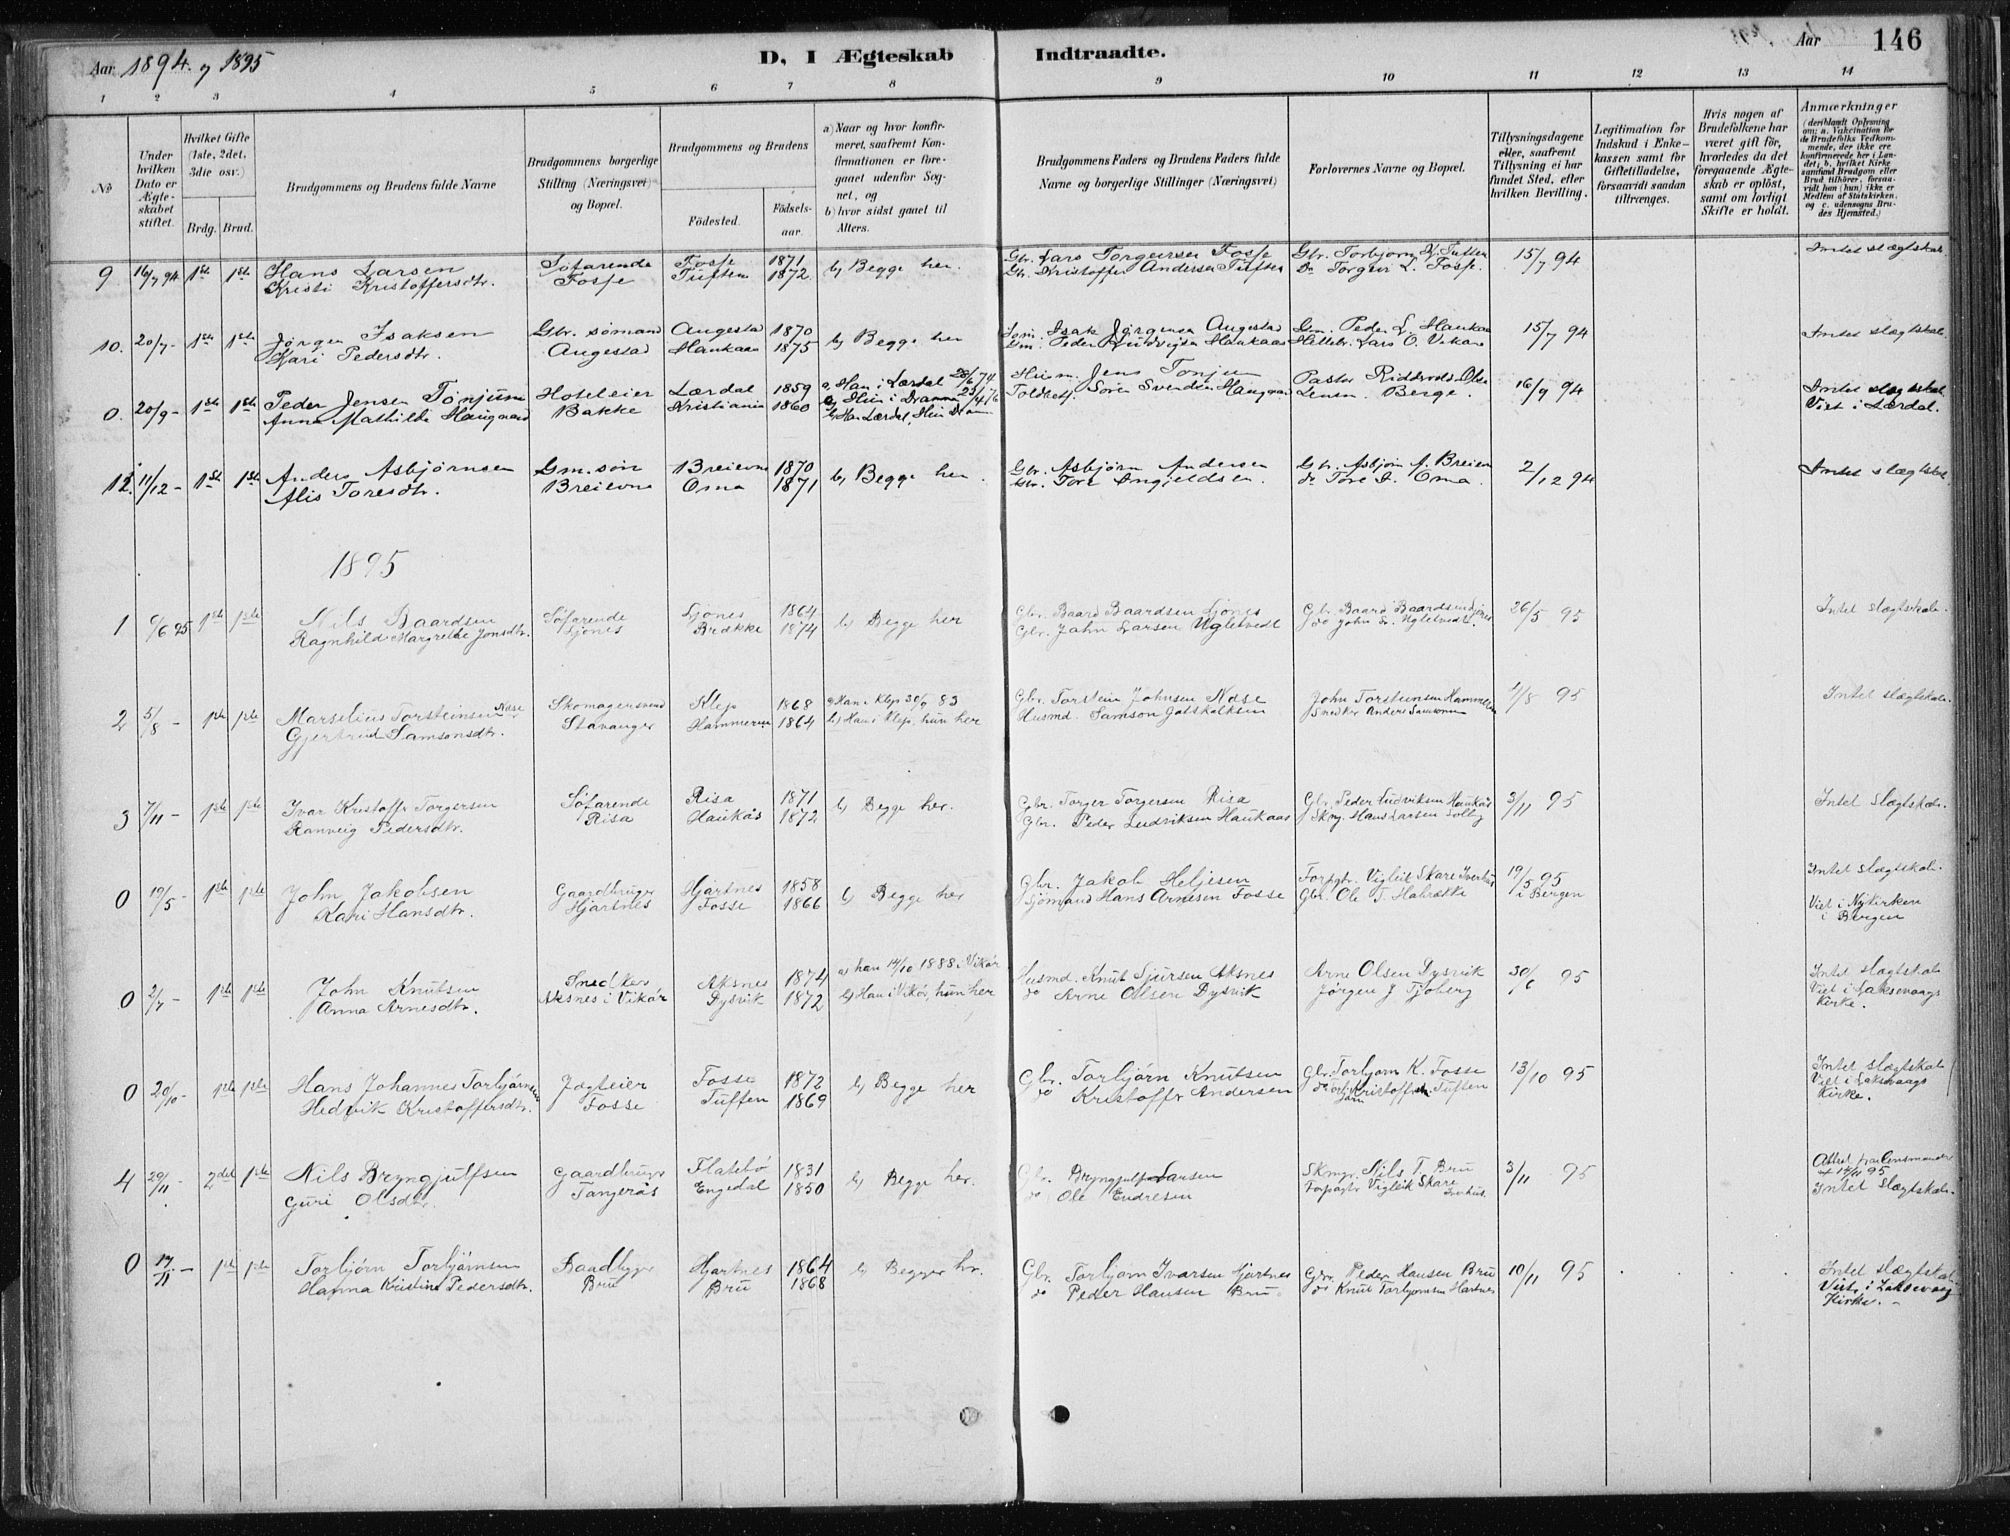 Aar 1894 og 1895
D. I Ægteskab Indtraadte.
Aar 146
1 2 3 4 5 6 7 8 9 10 11 12 13 14
No
Under hvilken Dato er Ægteskabet stiftet.
Hvilket Gifte (1ste, 2det, 3die osv.)
Brdg. Brud.
Brudgommens og Brudens fulde Navne
Brudgommens borgerlige Stilling (Næringsvei) og Bopæl.
Brudgommens og Brudens
Födested. Födselsaar.
a) Naar og hvor konfirmeret, saafremt Konfirmationen er foregaaet udenfor Sognet, og
b) hvor sidst gaaet til Alters.
Brudgommens Faders og Brudens Faders fulde Navne og borgerlige Stillinger (Næringsvei)
Forlovernes Navne og Bopæl.
Tillysningsdagene eller, saafremt Tillysning ei har fundet Sted, efter hvilken Bevilling.
Legitimation for Indskud i Enkekassen samt for Giftetilladelse, forsaavidt saadan tiltrænges.
Hvis nogen af Brudefolkene har været gift för, hvorledes da det foregaaende Ægteskab er oplöst, samt om lovligt Skifte er holdt.
Anmærkninger (deriblandt Oplysning om: a. Vakcination for de Brudefolks Vedkommende, der ikke ere konfirmerede her i Landet; b. hvilket Kirkesamfund Brudgom eller Brud tilhörer, forsaavidt han (hun) ikke er Medlem af Statskirken, og c. udensogns Brudes Hjemsted.)
9 16/7 94 1ste 1ste Hans Larsen Söfarende Fosse 1871 b) Begge her. Gbr. Lars Torgersen Fosse Gbr. Torbjørn Tuften 15/7 94 Intet slægtskab
Kristi Kristoffersdtr. Fosse Tuften 1872 Gbr. Kristoffer Andersen Tuften Do Torgeir L. Fosse.
10. 20/7 - 1ste 1ste Jørgen Isaksen Gbr. sømand Augestad 1870 b) Begge her Isak Jørgensen Augestad Gm. Peder L. Haukaas 15/7 94 Intet slægtskab.
Kari Pedersdtr. Augestad Haukaas 1875 Gm. Peder Ludvigsen Haukaas Lars O. Vikane
0. 20/9 - 1ste 1ste Peder Jensen Tønjum Hoteleier Lærdal 1859 a) Han i Lærdal 28/6 74 Jens Tonjum Pastor Riddervold Olsen 16/9 94 Intet slægtskab.
Anna Mathilde Haugaard Bakke Kristiania 1860 a) Hun i Drammen b) Han Lærdal, Hun Dramm Toldbetj. Sören Svendsen Haugaard Lensm. Berge. Viet i Lærdal.
12. 11/12 - 1ste 1ste Anders Asbjørnsen Gm. søn Breievne 1870 b) Begge her. Gbr. Asbjørn Andersen Gbr. Asbjørn A. Breien 2/12 94 Intet slægtskab
Alis Toresdtr. Breievne Oma 1871 Gbr. Tore Ingjeldsen. do Tore I. Oma.
1895
1 6/6 95 1ste 1ste Nils Baardsen Söfarende Ljones 1864 b) Begge her Gbr. Baard Baardsen Ljones Gbr. Baard Baardsen Ljones 26/5 95 Intet slægtskab.
Ragnhild Margrethe Jonsdtr. Ljones Brække 1874 Gbr. John Larsen Ugletvedt do John L. Ugletvedt
2 5/8 - 1ste 1ste Marselius Torsteinsen Nose Skomagersvend Klep 1868 a) Han i Klep 30/9 83 Gbr. Torstein Johnsen Nose John Torsteinsen Hammeren 1/8 95 Intet slægtskab.
Gjertrud Samsonsdtr. Stavanger Hammeren 1864 b) Han i Klep, hun her Husmd. Samson Jotskalksen Snedker Anders Samsonsen
3 7/11 - 1ste 1ste Ivar Kristoffer Torgersen Söfarende Risa 1871 b) Begge her. Gbr. Torger Torgersen Risa Gbr. Peder Ludviksen Haukås 3/11 95 Intet slægtskab.
Ranveig Pedersdtr. Risa Haukås 1872 Gbr. Peder Ludviksen Haukaas Skmg. Hans Larsen Solbg
0 19/5 - 1ste 1ste John Jakobsen Gaardbruger Hjartnes 1858 b) Begge her Gbr. Jakob Heljesen Forpgtr. Vigleik Skare Iverhus 19/5 95 Intet slægtskab.
Kari Hansdtr. Hjartnes Fosse 1866 Sjömand Hans Arnesen Fosse Gbr. Ole T. Habrekke i Bergen Viet i Nykirken i Bergen
0 2/7 - 1ste 1ste John Knutsen Snedker Aksnes 1874 a) han 14/10 1888 i Vikør Husmd. Knut Sjursen Aksnes Arne Olsen Dysvik 30/6 95 Intet slægtskab
Anna Arnesdtr. Aksnes i Vikør Dysvik 1872 b) Han i Vikør, hun her do Arne Olsen Dysvik Jørgen J Tjoberg Viet i Laksevaags Kirke.
0 20/10 - 1ste 1ste Hans Johannes Torbjørnsen Jagteier Fosse 1872 b) Begge her Gbr. Torbjörn Knutsen Gbr. Torbjørn K. Fosse 13/10 95 Intet slægtskab
Hedvik Kristoffersdtr. Fosse Tuften 1869 do Kristoffer Andersen do Torbjörn Kristoffersen Tuften Viet i Laksevaags Kirke.
4 29/11 - 2det 1ste Nils Bryngjulfsen Gaardbruger Flatebö 1831 b) Begge her. Gbr. Bryngjulf Larsen Skmgr. Nils T. Bru 3/11 95 Attest fra Lensmanden 14/11 95
Guri Olsdtr. Tangerås Engedal 1850 do Ole Endresen Forpagtr Vigleik Skare Iverhus. Intet slægtskab.
0 17/11 - 1ste 1ste Torbjørn Torbjørnsen Baadbygger Hjartnes 1864 b) Begge her. Gbr. Torbjorn Ivarsen Hjartnes Gbr. Peder Hansen Bru 10/11 95 Intet slægtskab.
Hanna Kristina Pedersdtr. Bru Bru 1868 do Peder Hansen Bru. do Knut Torbjørnsen Hartnes Viet i Laksevaag Kirke. -